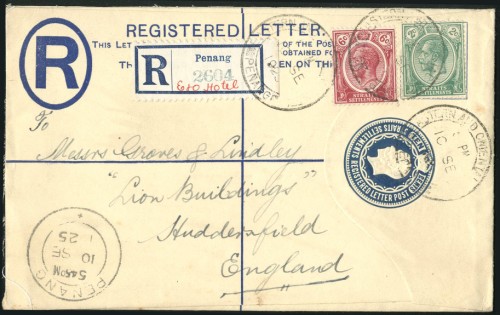 REGISTERED LETTER.
THIS LET
OF THE POS
OBTAINED FO
TH
EN ON THE
R
R
Penang
2604
E & O Hotel
6c
6c
STRAITS
SETTLEMENTS
2c
2c
STRAITS
SETTLEMENTS
STRAITS SETTLEMENTS REGISTERED LETTER POST
To
Messrs Groves & Lindley
"Lion Buildings"
Huddersfield
England
AND ORIENT
PM
10 SE
PENANG
545PM
10 SE
25